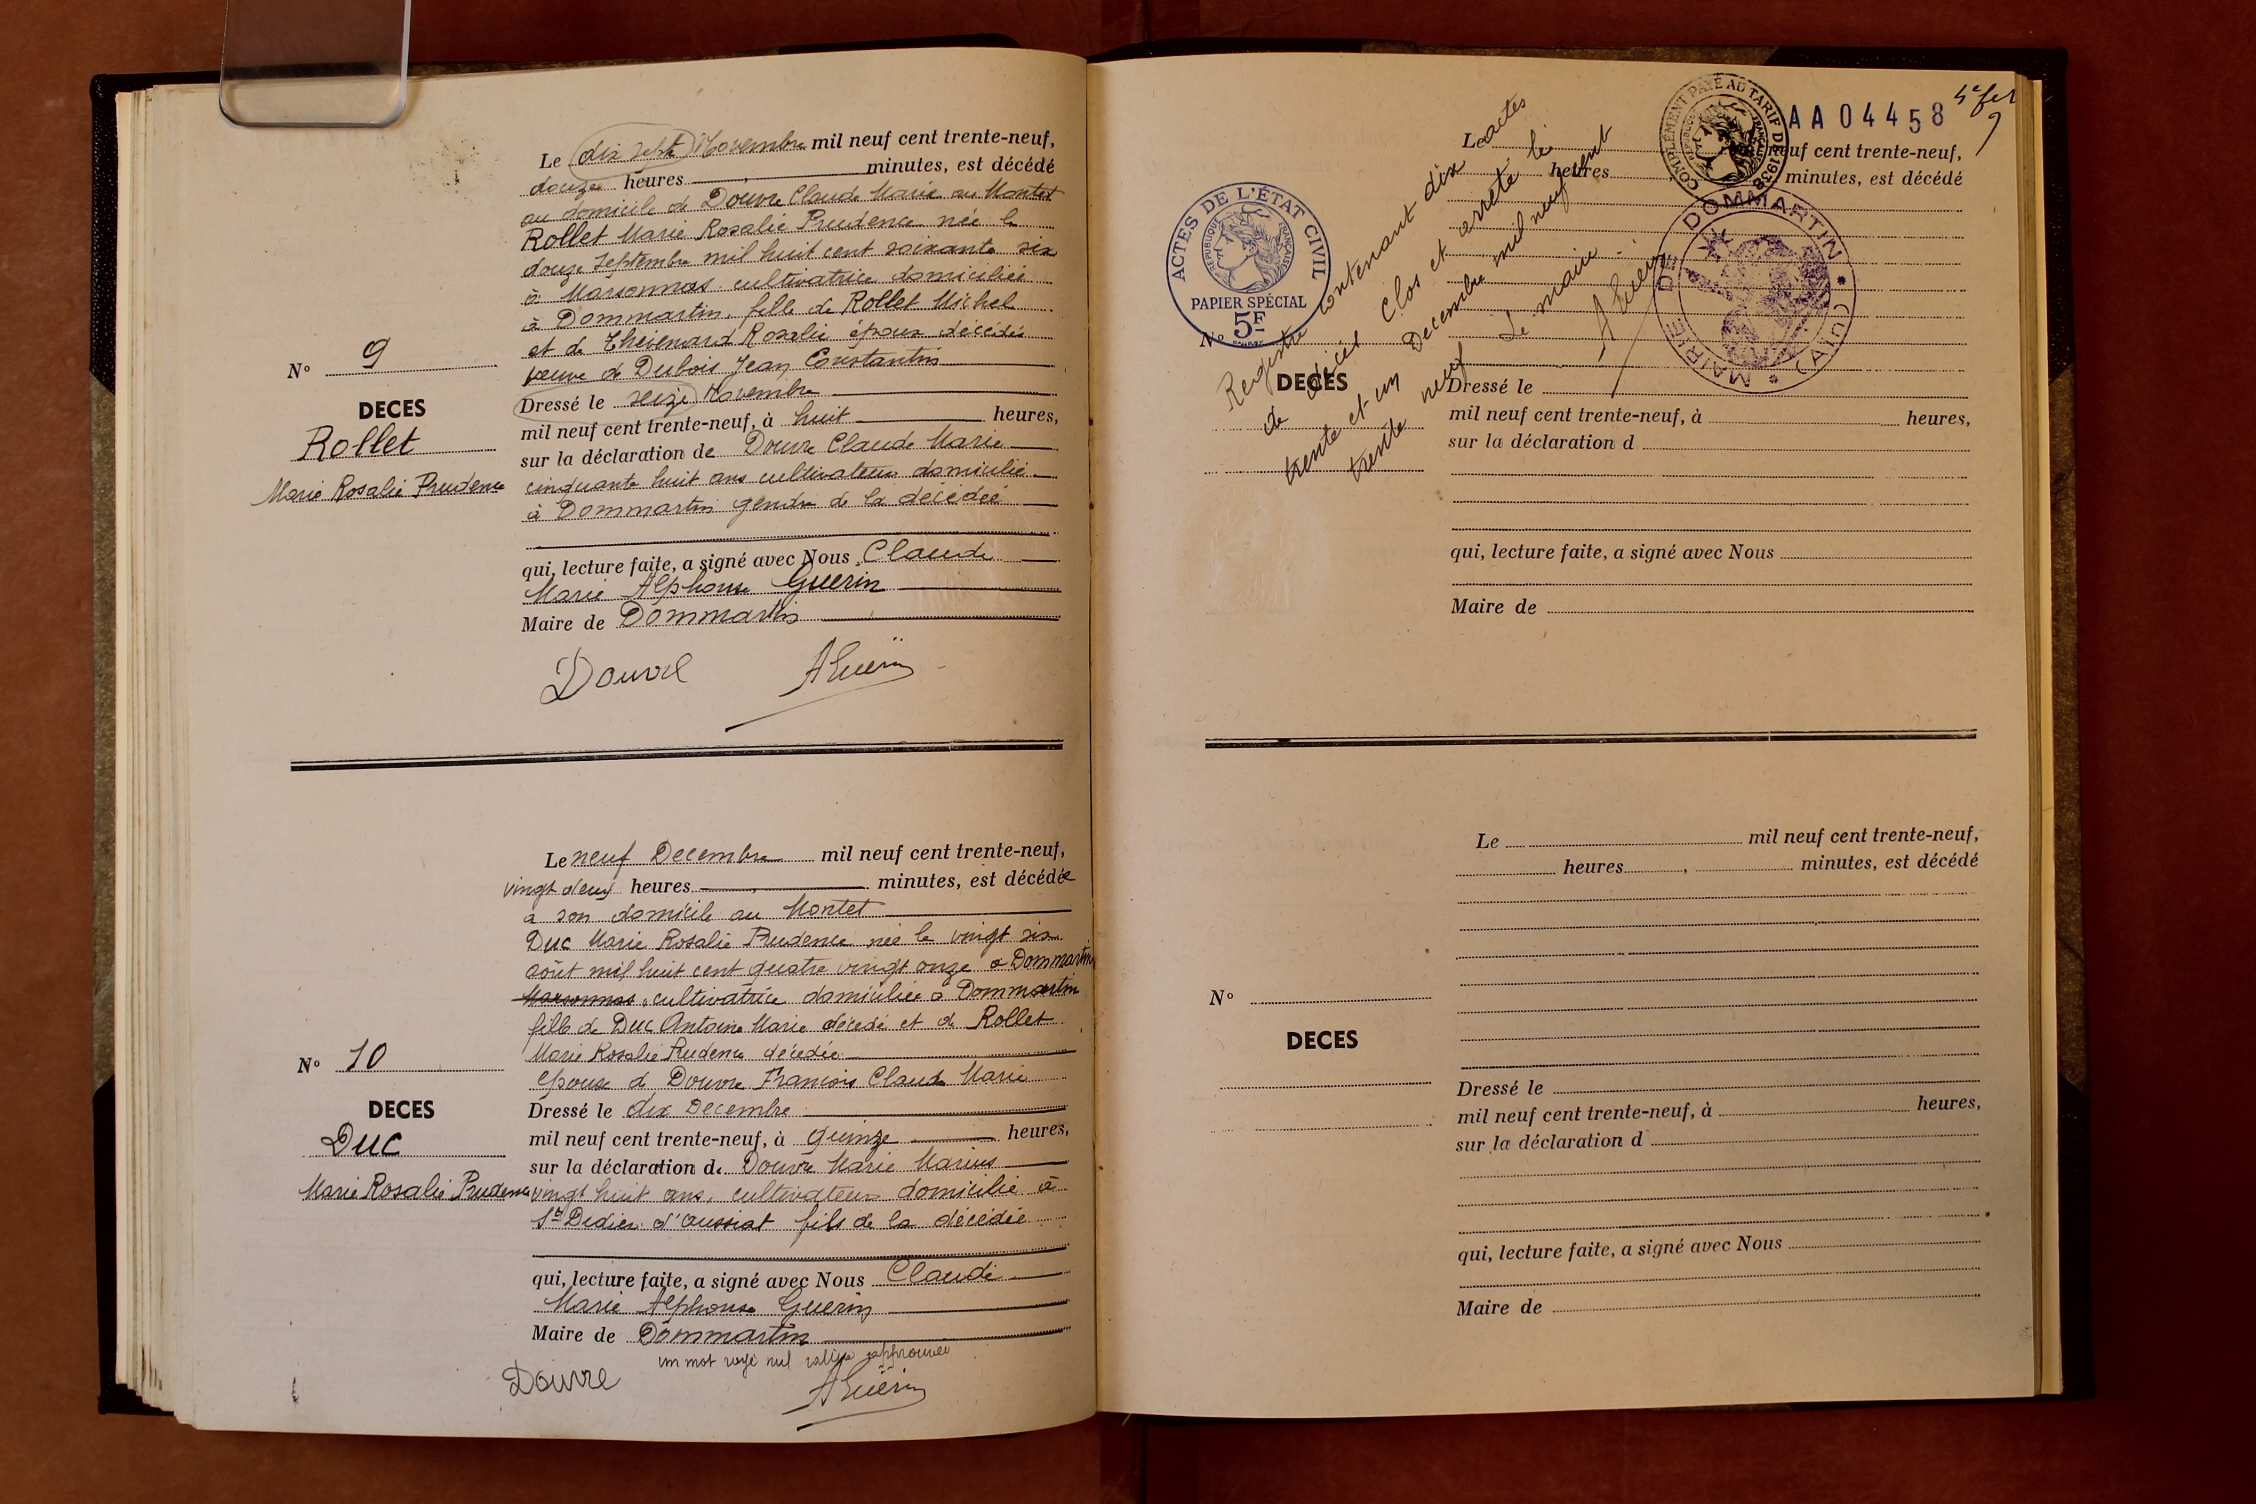 Le dix sept Novembre mil neuf cent trente-neuf,
douze heures minutes, est décédé
au domicile de Douvre Claude Marie au Montet
Rollet Marie Rosalie Prudence née le
douze Septembre mil huit cent soixante six
à Marsonnas, cultivatrice domiciliée
à Dommartin, fille de Rollet Michel
et de Thévenard Rosalie époux décédés
veuve de Dubois Jean Constantin
N° 9
DECES
Rollet
Marie Rosalie Prudence
Dressé le seize Novembre
mil neuf cent trente-neuf, à huit heures,
sur la déclaration de Douvre Claude Marie
cinquante huit ans cultivateur domicilié
à Dommartin gendre de la décédée
qui, lecture faite, a signé avec Nous Claude
Marie Alphonse Guerin
Maire de Dommartin
Douvre AGuërin
Le neuf Decembre mil neuf cent trente-neuf,
vingt deux heures minutes, est décédée
à son domicile au Montet
Duc Marie Rosalie Prudence née le vingt six
août mil huit cent quatre vingt onze à Dommartin
Marsonnas, cultivatrice domiciliée à Dommartin
fille de Duc Antoine Marie décédé et de Rollet
Marie Rosalie Prudence décédée
épouse d Douvre François Claude Marie
N° 10
DECES
Duc
Marie Rosalie Prudence
Dressé le dix Decembre
mil neuf cent trente-neuf, à quinze heures,
sur la déclaration de Douvre Marie Marius
vingt huit ans, cultivateur domicilié à
St Didier d'aussiat fils de la décédée
qui, lecture faite, a signé avec Nous Claude
Marie Alphonse Guerin
Maire de Dommartin
un mot rayé nul approuvé
Douvre AGuërin
5e fet
9
AA 04458
COMPLÉMENT PAYÉ AU TARIF DE 1938
RÉPUBLIQUE FRANÇAISE
MAIRIE DE DOMMARTIN * (AIN) *
ACTES DE L'ÉTAT CIVIL
RÉPUBLIQUE FRANÇAISE
PAPIER SPÉCIAL
5F
Registre contenant dix actes
de décès Clos et arrêté le
trente et un Decembre mil neuf cent
trente neuf Le maire
AGuërin
Le neuf cent trente-neuf,
heures minutes, est décédé
N°
DECES
Dressé le
mil neuf cent trente-neuf, à heures,
sur la déclaration d
qui, lecture faite, a signé avec Nous
Maire de
Le mil neuf cent trente-neuf,
heures, minutes, est décédé
N°
DECES
Dressé le
mil neuf cent trente-neuf, à heures,
sur la déclaration d
qui, lecture faite, a signé avec Nous
Maire de